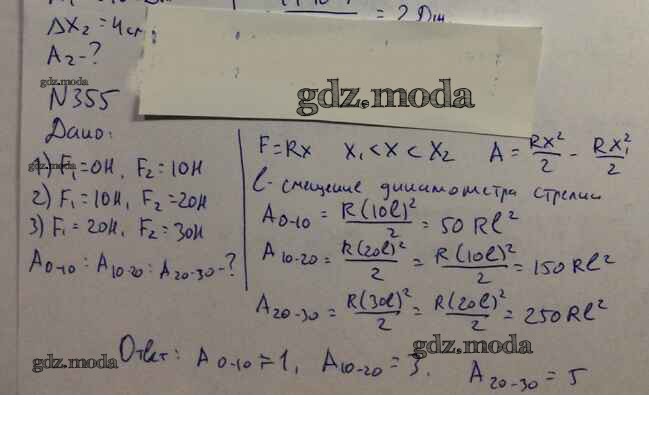 ΔX₂ = 4см
= 2 Дж
A₂ - ?
gdz.moda
gdz.moda
N355
Дано:
gdz.moda
1) F₁ = 0H, F₂ = 10H
2) F₁ = 10H, F₂ = 20H
3) F₁ = 20H, F₂ = 30H
A₀₋₁₀ : A₁₀₋₂₀ : A₂₀₋₃₀ - ?
F = Rx X₁ < X < X₂ A = RX²/2 - RX₁²/2
l - смещение динамометра стрелки
A₀₋₁₀ = R(10l)²/2 = 50 Rl²
A₁₀₋₂₀ = R(20l)²/2 = R(10l)²/2 = 150 Rl²
A₂₀₋₃₀ = R(30l)²/2 = R(20l)²/2 = 250 Rl²
gdz.moda
gdz.moda
Ответ: A₀₋₁₀ = 1, A₁₀₋₂₀ = 3, A₂₀₋₃₀ = 5